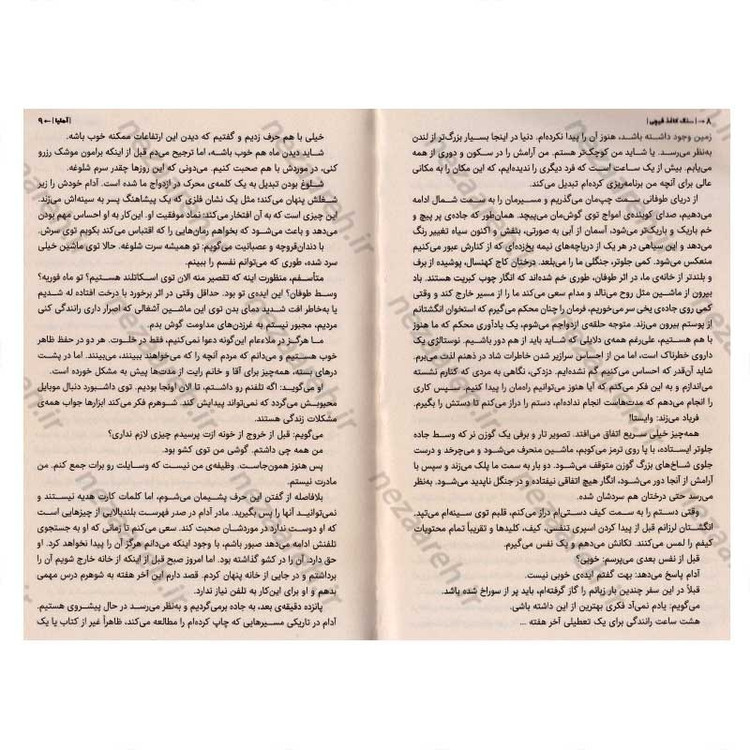 ۸ → | سنگ کاغذ قیچی |
زمین وجود داشته باشد، هنوز آن را پیدا نکرده‌ام. دنیا در اینجا بسیار بزرگ‌تر از لندن
به‌نظر می‌رسد. یا شاید من کوچک‌تر هستم. من آرامش را در سکون و دوری از همه
می‌یابم. بیش از یک ساعت است که فرد دیگری را ندیده‌ایم، که این مکان را به مکانی
عالی برای آنچه من برنامه‌ریزی کرده‌ام تبدیل می‌کند.
از دریای طوفانی سمت چپ‌مان می‌گذریم و مسیرمان را به سمت شمال ادامه
می‌دهیم، صدای کوبنده‌ی امواج توی گوش‌مان می‌پیچد. همان‌طور که جاده‌ی پر پیچ و
خم باریک و باریک‌تر می‌شود، آسمان از آبی به صورتی، بنفش و اکنون سیاه تغییر رنگ
می‌دهد و این سیاهی در هر یک از دریاچه‌های نیمه یخ‌زده‌ای که از کنارش عبور می‌کنیم
منعکس می‌شود. کمی جلوتر، جنگلی ما را می‌بلعد. درختان کاج کهنسال، پوشیده از برف
و بلندتر از خانه‌ی ما، در اثر طوفان، طوری خم شده‌اند که انگار چوب کبریت هستند. باد
بیرون از ماشین مثل روح می‌نالد و مدام سعی می‌کند ما را از مسیر خارج کند و وقتی
کمی روی جاده‌ی یخی سر می‌خوریم، فرمان را چنان محکم می‌گیرم که استخوان انگشتانم
از پوستم بیرون می‌زند. متوجه حلقه‌ی ازدواجم می‌شوم، یک یادآوری محکم که ما هنوز
با هم هستیم، علی‌رغم همه‌ی دلایلی که شاید باید از هم دور باشیم. نوستالژی یک
داروی خطرناک است، اما من از احساس سرازیر شدن خاطرات شاد در ذهنم لذت می‌برم.
شاید آن‌قدر که احساس می‌کنیم گم نشده‌ایم. دزدکی، نگاهی به مردی که کنارم نشسته
می‌اندازم و به این فکر می‌کنم که آیا هنوز می‌توانیم راه‌مان را پیدا کنیم. سپس کاری
را انجام می‌دهم که مدت‌هاست انجام نداده‌ام، دستم را دراز می‌کنم تا دستش را بگیرم.
فریاد می‌زند: وایستا!
همه‌چیز خیلی سریع اتفاق می‌افتد. تصویر تار و برفی یک گوزن نر که وسط جاده
جلوتر ایستاده، با پا روی ترمز می‌کوبم، ماشین منحرف می‌شود و می‌چرخد و درست
جلوی شاخ‌های بزرگ گوزن متوقف می‌شود. دو بار به سمت ما پلک می‌زند و سپس با
آرامش از آنجا دور می‌شود، انگار هیچ اتفاقی نیفتاده و در جنگل ناپدید می‌شود. به‌نظر
می‌رسد حتی درختان هم سردشان شده.
وقتی دستم را به سمت کیف دستی‌ام دراز می‌کنم، قلبم توی سینه‌ام می‌تپد.
انگشتان لرزانم قبل از پیدا کردن اسپری تنفسی، کیف، کلیدها و تقریباً تمام محتویات
کیفم را لمس می‌کنند. تکانش می‌دهم و یک نفس می‌گیرم.
قبل از نفس بعدی می‌پرسم: خوبی؟
آدام پاسخ می‌دهد: بهت گفتم ایده‌ی خوبی نیست.
قبلاً در این سفر چندین بار زبانم را گاز گرفته‌ام، باید پر از سوراخ شده باشد.
می‌گویم: یادم نمی‌آد فکری بهترین از این داشته باشی.
هشت ساعت رانندگی برای یک تعطیلی آخر هفته ...
| آملیا | ← ۹
خیلی با هم حرف زدیم و گفتیم که دیدن این ارتفاعات ممکنه خوب باشه.
شاید دیدن ماه هم خوب باشه، اما ترجیح می‌دم قبل از اینکه برامون موشک رزرو
کنی، در موردش با هم صحبت کنیم. می‌دونی که این روزها چقدر سرم شلوغه.
شلوغ بودن تبدیل به یک کلمه‌ی محرک در ازدواج ما شده است. آدام خودش را زیر
شغلش پنهان می‌کند؛ مثل یک نشان فلزی که یک پیشاهنگ پسر به سینه‌اش می‌زند.
این چیزی است که به آن افتخار می‌کند: نماد موفقیت او. این‌کار به او احساس مهم بودن
می‌دهد و باعث می‌شود که بخواهم رمان‌هایی را که اقتباس می‌کند بکوبم توی سرش.
با دندان‌قروچه و عصبانیت می‌گویم: تو همیشه سرت شلوغه. حالا توی ماشین خیلی
سرد شده، طوری که می‌توانم نفسم را ببینم.
متأسفم، منظورت اینه که تقصیر منه الان توی اسکاتلند هستیم؟ تو ماه فوریه؟
وسط طوفان؟ این ایده‌ی تو بود. حداقل وقتی در اثر برخورد با درخت افتاده له شدیم
یا به‌خاطر افت شدید دمای بدن توی این ماشین آشغالی که اصرار داری رانندگی کنی
مردیم، مجبور نیستم به غرزدن‌های مداومت گوش بدم.
ما هرگز در ملاءعام این‌گونه دعوا نمی‌کنیم، فقط در خلوت. هر دو در حفظ ظاهر
خوب هستیم و می‌دانم که مردم آنچه را که می‌خواهند ببینند، می‌بینند. اما در پشت
درهای بسته، همه‌چیز برای آقا و خانم رایت از مدت‌ها پیش به مشکل خورده است.
او می‌گوید: اگه تلفنم رو داشتم، تا الان اونجا بودیم. توی داشبورد دنبال موبایل
محبوبش می‌گردد که نمی‌تواند پیدایش کند. شوهرم فکر می‌کند ابزارها جواب همه‌ی
مشکلات زندگی هستند.
می‌گویم: قبل از خروج از خونه ازت پرسیدم چیزی لازم نداری؟
من همه چی داشتم. گوشی من توی کشو بود.
پس هنوز همون‌جاست. وظیفه‌ی من نیست که وسایلت رو برات جمع کنم. من
مادرت نیستم.
بلافاصله از گفتن این حرف پشیمان می‌شوم، اما کلمات کارت هدیه نیستند و
نمی‌توانید آنها را پس بگیرید. مادر آدام در صدر فهرست بلندبالایی از چیزهایی است
که او دوست ندارد در موردشان صحبت کند. سعی می‌کنم تا زمانی که او به جستجوی
تلفنش ادامه می‌دهد صبور باشم، با وجود اینکه می‌دانم هرگز آن را پیدا نخواهد کرد. او
حق دارد. آن را در کشو گذاشته بود. اما امروز صبح قبل از اینکه از خانه خارج شویم آن را
برداشتم و در جایی از خانه پنهان کردم. قصد دارم این آخر هفته به شوهرم درس مهمی
بدهم و او برای این‌کار به تلفن نیاز ندارد.
پانزده دقیقه‌ی بعد، به جاده برمی‌گردیم و به‌نظر می‌رسد در حال پیشروی هستیم.
آدام در تاریکی مسیرهایی که چاپ کرده‌ام را مطالعه می‌کند، ظاهراً غیر از کتاب یا یک
nezaareh.ir